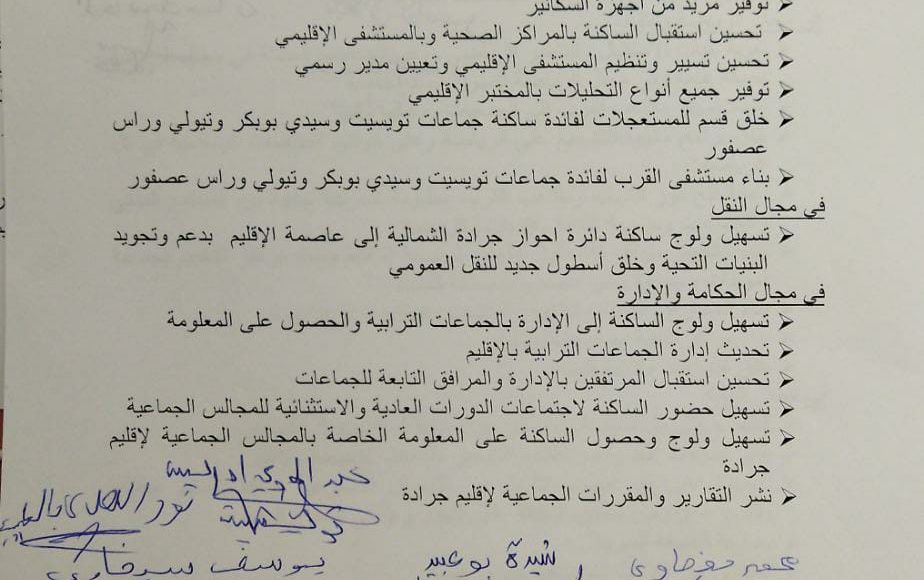 توفير مزيد من أجهزة السكانير
تحسين استقبال الساكنة بالمراكز الصحية وبالمستشفى الإقليمي
تحسين تسيير وتنظيم المستشفى الإقليمي وتعيين مدير رسمي
توفير جميع أنواع التحليلات بالمختبر الإقليمي
خلق قسم للمستعجلات لفائدة ساكنة جماعات تويسيت وسيدي بوبكر وتيولي وراس
عصفور
بناء مستشفى القرب لفائدة جماعات تويسيت وسيدي بوبكر وتيولي وراس عصفور
في مجال النقل
تسهيل ولوج ساكنة دائرة احواز جرادة الشمالية إلى عاصمة الإقليم بدعم وتجويد
البنيات التحية وخلق أسطول جديد للنقل العمومي
في مجال الحكامة والإدارة
تسهيل ولوج الساكنة إلى الإدارة بالجماعات الترابية والحصول على المعلومة
تحديث إدارة الجماعات الترابية بالإقليم
تحسين استقبال المرتفقين بالإدارة والمرافق التابعة للجماعات
تسهيل حضور الساكنة لاجتماعات الدورات العادية والاستثنائية للمجالس الجماعية
تسهيل ولوج وحصول الساكنة على المعلومة الخاصة بالمجالس الجماعية لإقليم
جرادة
نشر التقارير والمقررات الجماعية لإقليم جرادة
يوسف